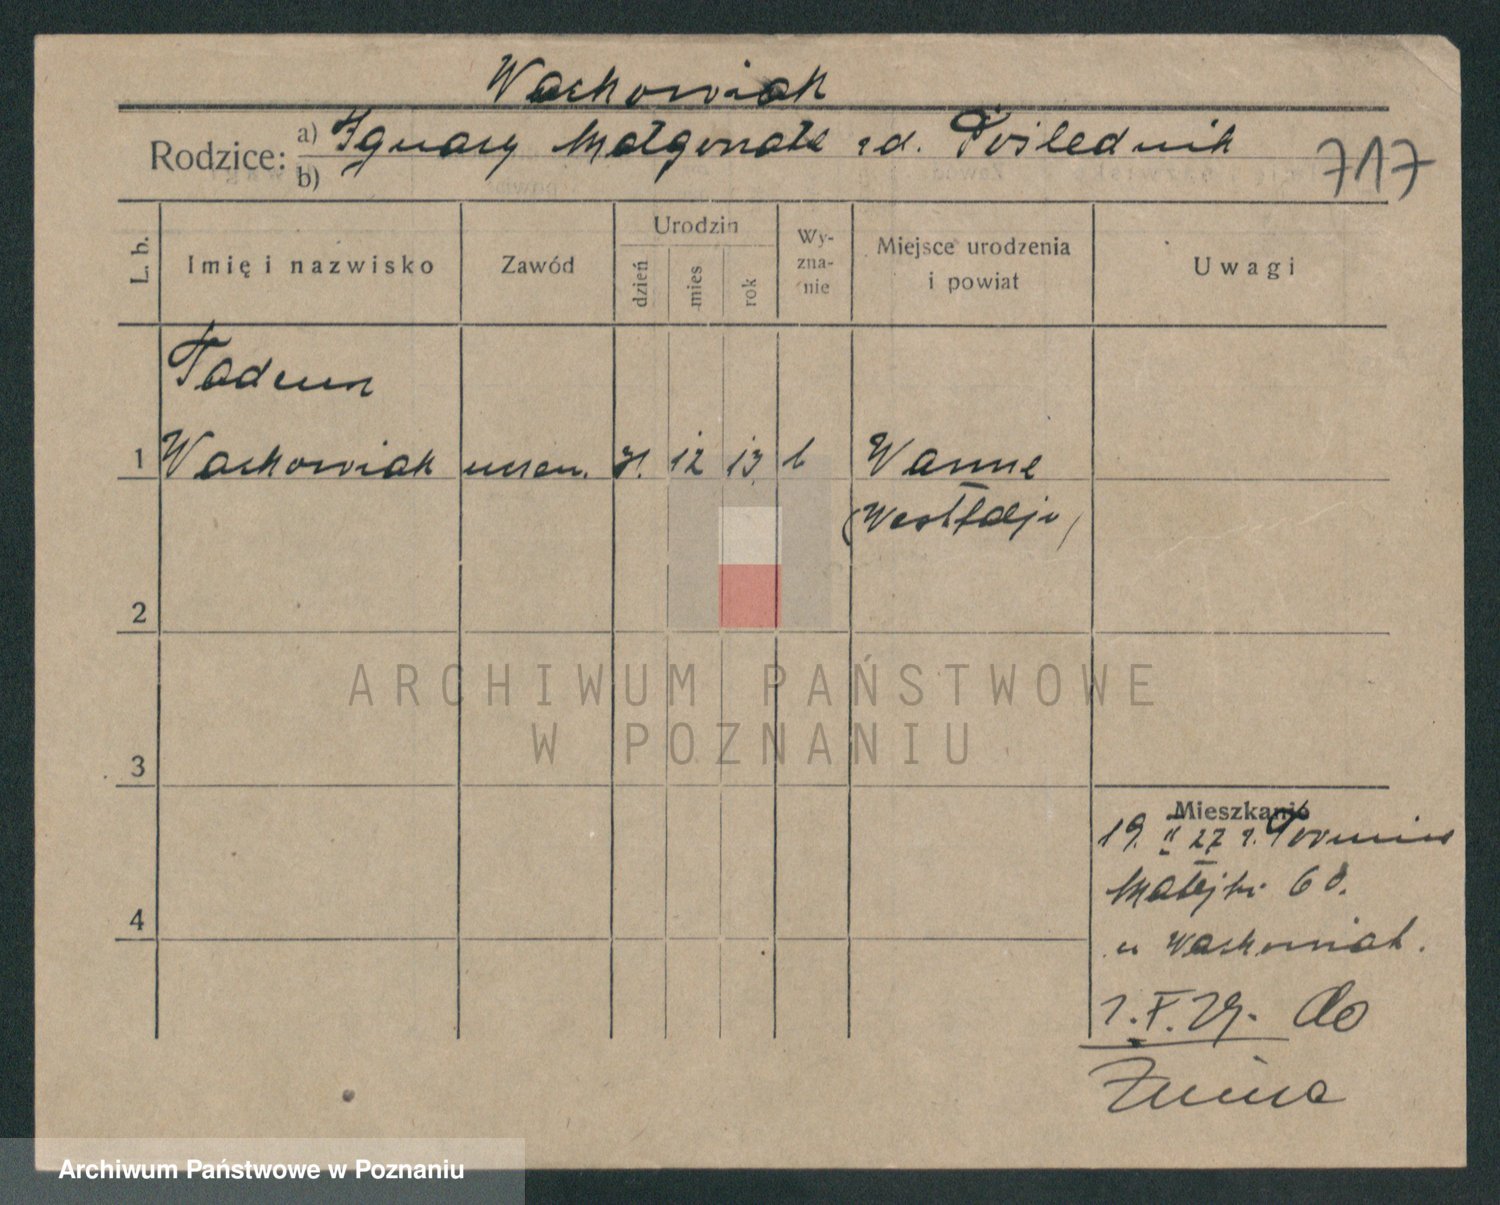 Wachowiak
Rodzice: a) Ignacy Małgorzata zd. Poślednik
b)
717
L. b. Imię i nazwisko Zawód Urodzin dzień mies rok Wy-zna-nie Miejsce urodzenia i powiat Uwagi
Tadeusz
1 Wachowiak uczeń. 31. 12 13. k Wanne
(Westfalja)
2
ARCHIWUM PAŃSTWOWE
W POZNANIU
3
Mieszkanie
19. II 27 z Torunia
Matejki 60.
u Wachowiak.
4
1. X. 29. do
Żnina
Archiwum Państwowe w Poznaniu